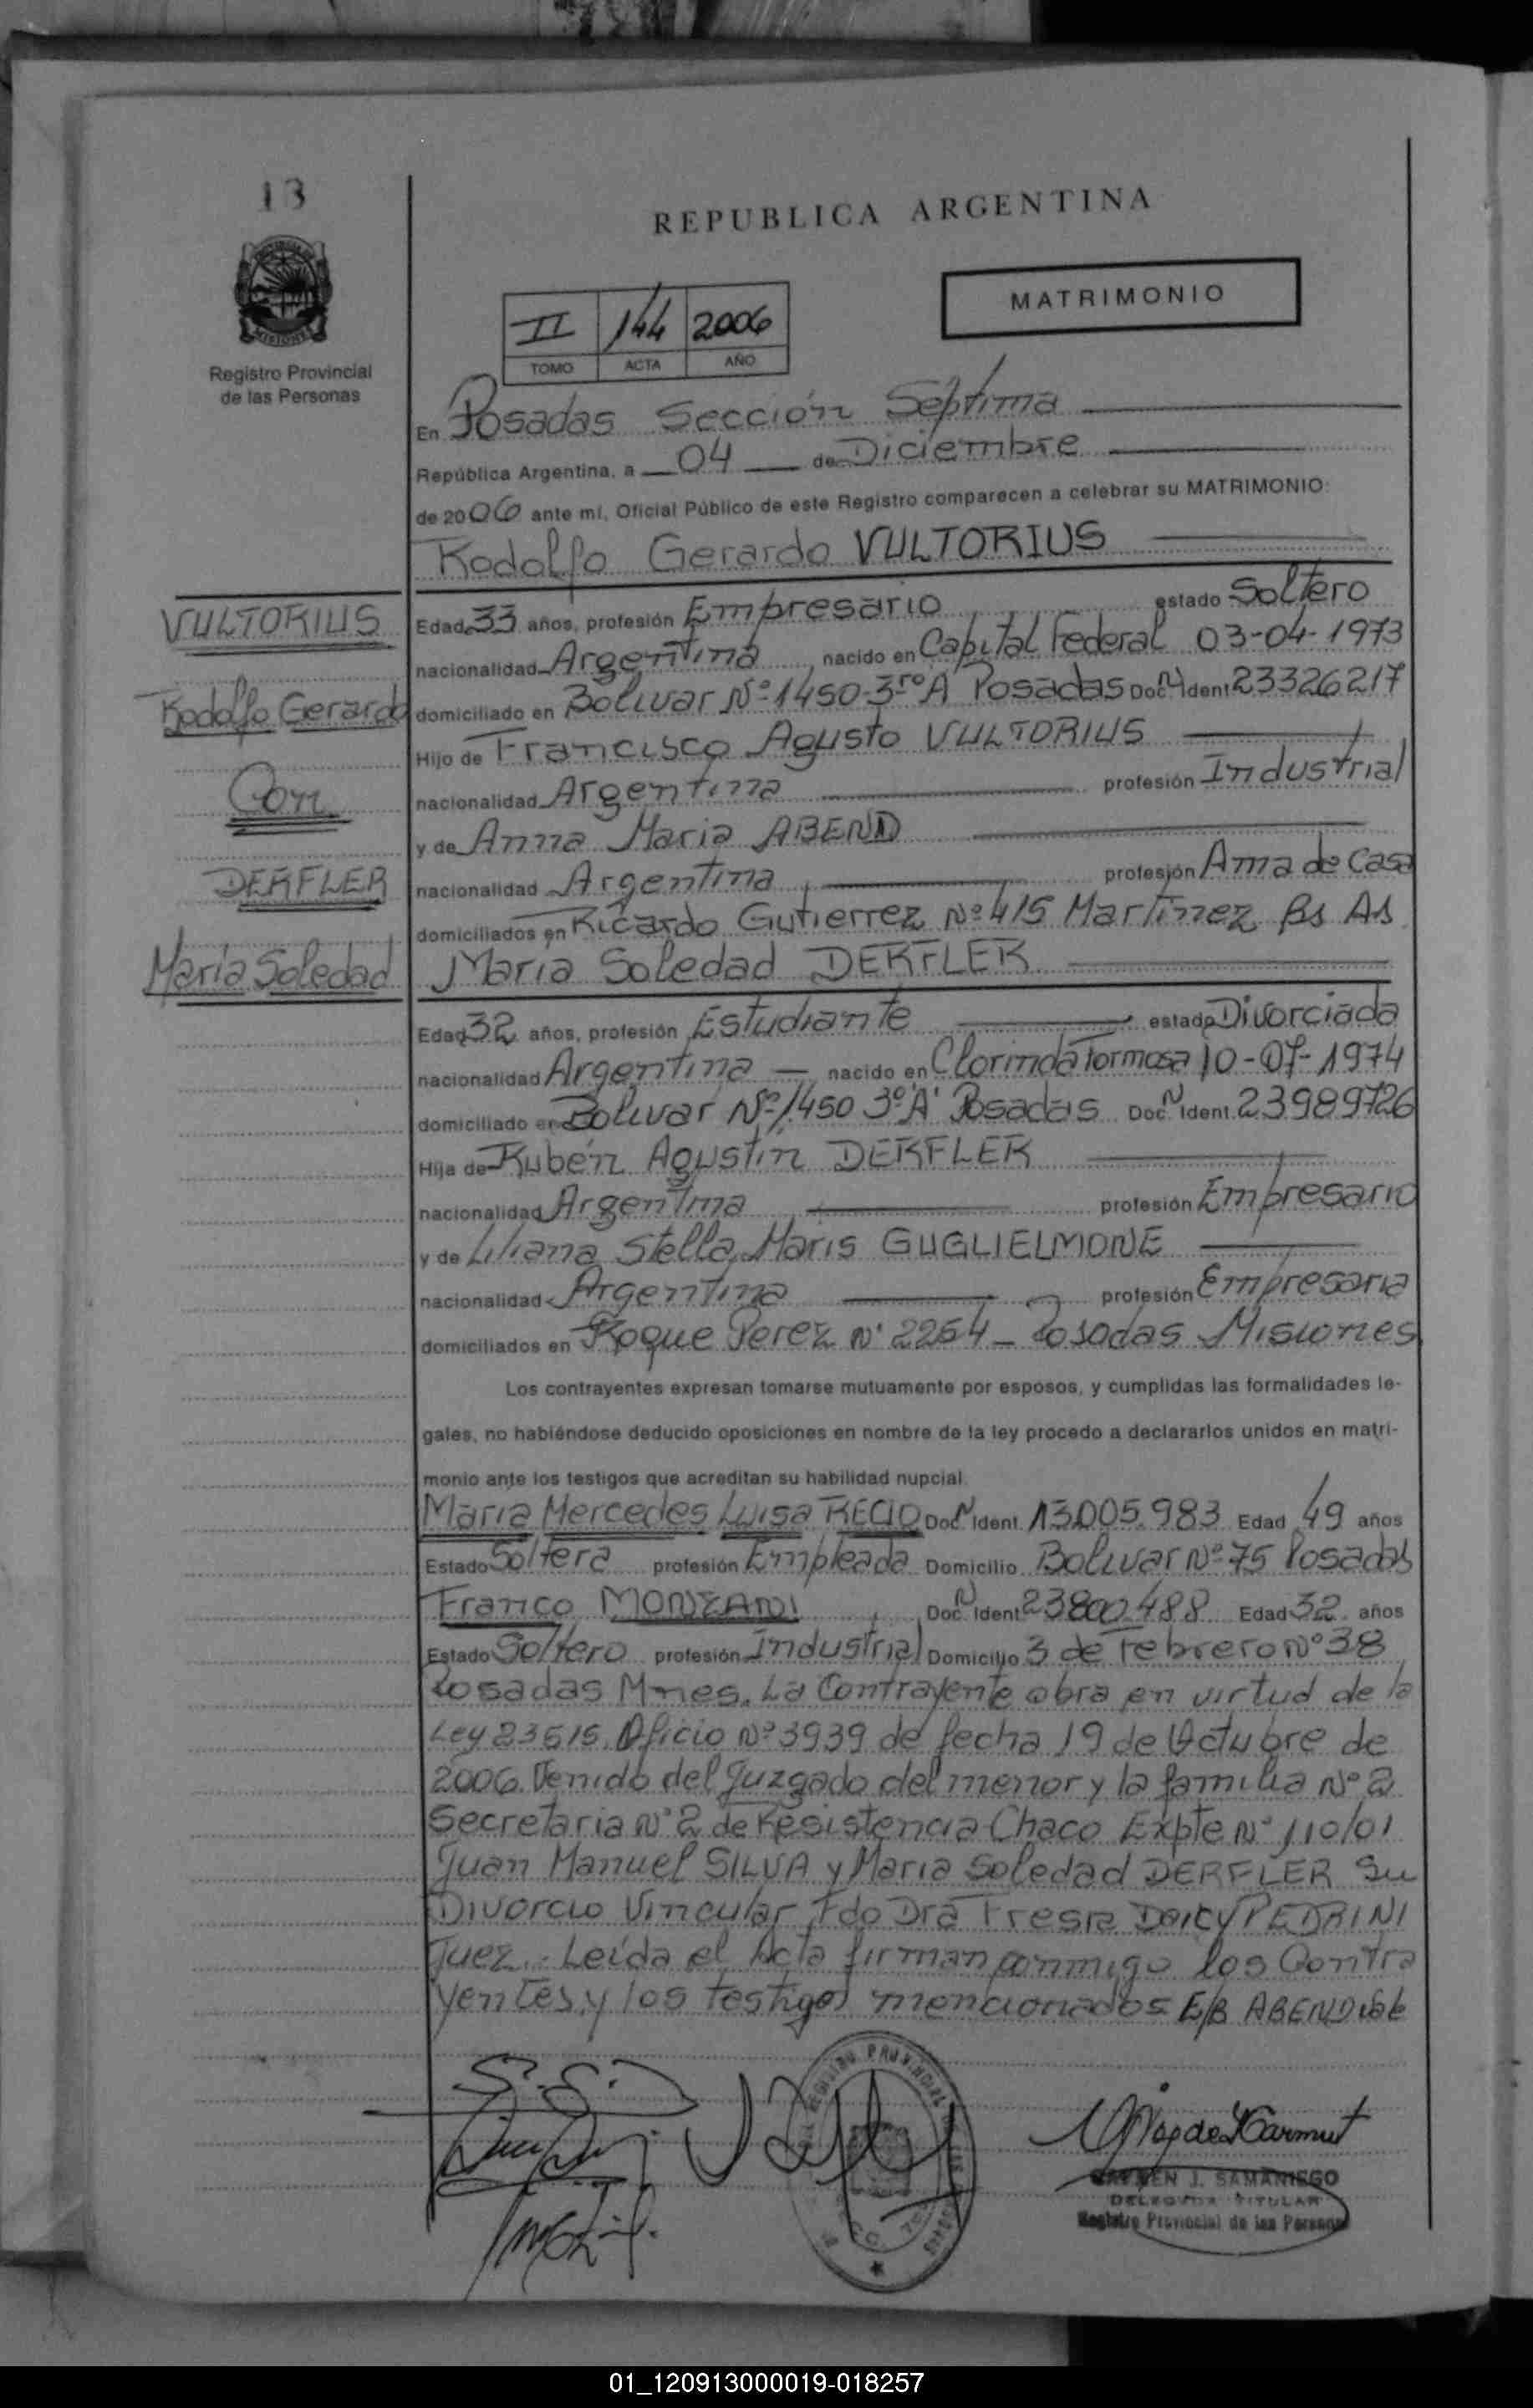 13
REPUBLICA ARGENTINA
MATRIMONIO
Registro Provincial
de las Personas
II 144 2006
TOMO ACTA AÑO
En Posadas Sección Séptima
República Argentina, a 04 de Diciembre
de 2006 ante mí, Oficial Público de este Registro comparecen a celebrar su MATRIMONIO:
Rodolfo Gerardo VULTORIUS
VULTORIUS
Rodolfo Gerardo
Con
DERFLER
María Soledad
Edad 33 años, profesión Empresario estado Soltero
nacionalidad Argentina nacido en Capital Federal 03-04-1973
domiciliado en Bolivar Nº 1450-3ro A Posadas Doc. N Ident. 23326217
Hijo de Francisco Agusto VULTORIUS
nacionalidad Argentina profesión Industrial
y de Anna Maria ABEND
nacionalidad Argentina profesión Ama de Casa
domiciliados en Ricardo Gutierrez Nº 415 Martinez Bs As
María Soledad DERFLER
Edad 32 años, profesión Estudiante estado Divorciada
nacionalidad Argentina nacido en Clorinda Formosa 10-07-1974
domiciliado en Bolivar Nº 1450 3º"A" Posadas Doc. N Ident. 23989726
Hija de Rubén Agustín DERFLER
nacionalidad Argentina profesión Empresario
y de Liliana Stella Maris GUGLIELMONE
nacionalidad Argentina profesión Empresaria
domiciliados en Roque Perez Nº 2264 - Posadas Misiones
Los contrayentes expresan tomarse mutuamente por esposos, y cumplidas las formalidades le-
gales, no habiéndose deducido oposiciones en nombre de la ley procedo a declararlos unidos en matri-
monio ante los testigos que acreditan su habilidad nupcial.
María Mercedes Luisa RECIO Doc. N Ident. 13.005.983 Edad 49 años
Estado Soltera profesión Empleada Domicilio Bolivar Nº 75 Posadas
Franco MONZANI Doc. N Ident. 23800488 Edad 32 años
Estado Soltero profesión Industrial Domicilio 3 de Febrero Nº 38
Posadas Mnes. La Contrayente obra en virtud de la
Ley 23515. Oficio Nº 3939 de fecha 19 de Octubre de
2006. Venido del Juzgado del menor y la familia Nº 2
Secretaria Nº 2 de Resistencia Chaco Expte Nº 110/01
Juan Manuel SILVA y María Soledad DERFLER Su
Divorcio Vincular Fdo Dra Fresia PEDRINI
Juez.- Leída el Acta firman conmigo los Contra
yentes y los testigos mencionados E/B ABEND
REGISTRO PROVINCIAL
CARMEN J. SAMANIEGO
DELEGADA TITULAR
Registro Provincial de las Personas
01_120913000019-018257